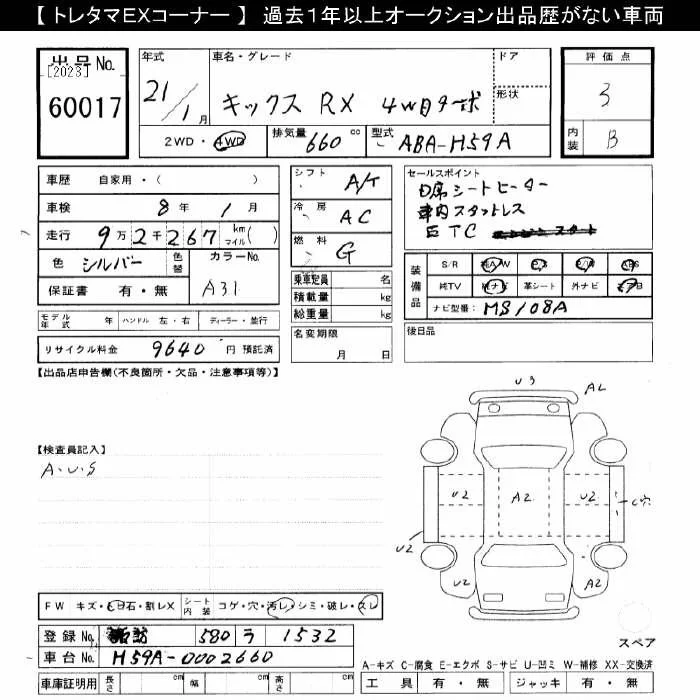 【 トレタマEXコーナー 】 過去1年以上オークション出品歴がない車両
出品No. [2023] 60017
年式 21/1月
車名・グレード キックス RX 4WDターボ
ドア
形状
評価点 3
内装 B
2WD・4WD 排気量 660 cc 型式 ABA-H59A
車歴 自家用・( )
車検 8年 1月
走行 9万2千267 km マイル( )
色 シルバー 色替 カラーNo. A31
保証書 有・無
モデル年式 年 ハンドル 左・右 ディーラー・並行
リサイクル料金 9640 円 預託済
シフト A/T
冷房 AC
燃料 G
乗車定員 名
積載量 kg
総重量 kg
名変期限 月 日
セールスポイント
D席シートヒーター
車内スタットレス
ETC
装備品 S/R 純A/W P/S P/W ABS
純TV 純ナビ 革シート 外ナビ エアB
ナビ型番 MS108A
後日品
【出品店申告欄(不良箇所・欠品・注意事項等)】
【検査員記入】
A・U・S
U3 AL
U2 A2 U2 C穴
U2 U2
U2 A2
FW キズ・ヒ石・割レX シート内装 コゲ・穴・汚レ・シミ・破レ・スレ
登録No. 580 ラ 1532
車台No. H59A-0002660
車庫証明用 長さ cm 幅 cm 高さ cm
スペア
A-キズ C-腐食 E-エクボ S-サビ U-凹ミ W-補修 XX-交換済
工具 有・無 ジャッキ 有・無